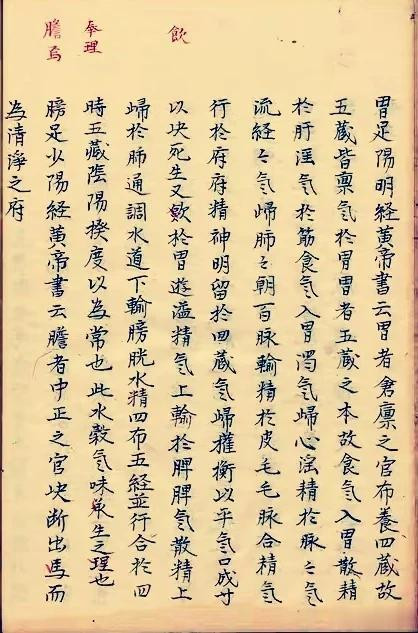 飲
奉理
膽焉
胃足陽明経黄帝書云胃者倉廪之官布養四蔵故
五蔵皆禀氣於胃胃者五蔵之本故食氣入胃散精
於肝淫氣於筋食氣入胃濁氣歸心淫精於脉〻氣
流経〻氣歸肺〻朝百脉輸精於皮毛毛脉合精氣
行於府府精神明留於四蔵氣歸權衡以平氣口成寸
以决死生又飲於胃遊溢精氣上輸於脾脾氣散精上
歸於肺通調水道下輸膀胱水精四布五経並行合於四
時五蔵陰陽揆度以為常也此水穀氣味単生之理也
膀足少陽経黄帝書云膽者中正之官决断出馬而
為清淨之府